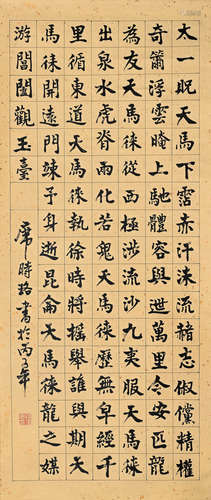 太一貺天馬下霑赤汗沫流赭志俶儻精權
奇籋浮雲晻上馳體容與迣萬里今安匹龍
為友天馬徠從西極涉流沙九夷服天馬徠
出泉水虎脊兩化若鬼天馬徠歷無皁經千
里循東道天馬徠執徐時將搖舉誰與期天
馬徠開遠門竦予身逝昆侖天馬徠龍之媒
游閶闔觀玉臺
席時書於丙年